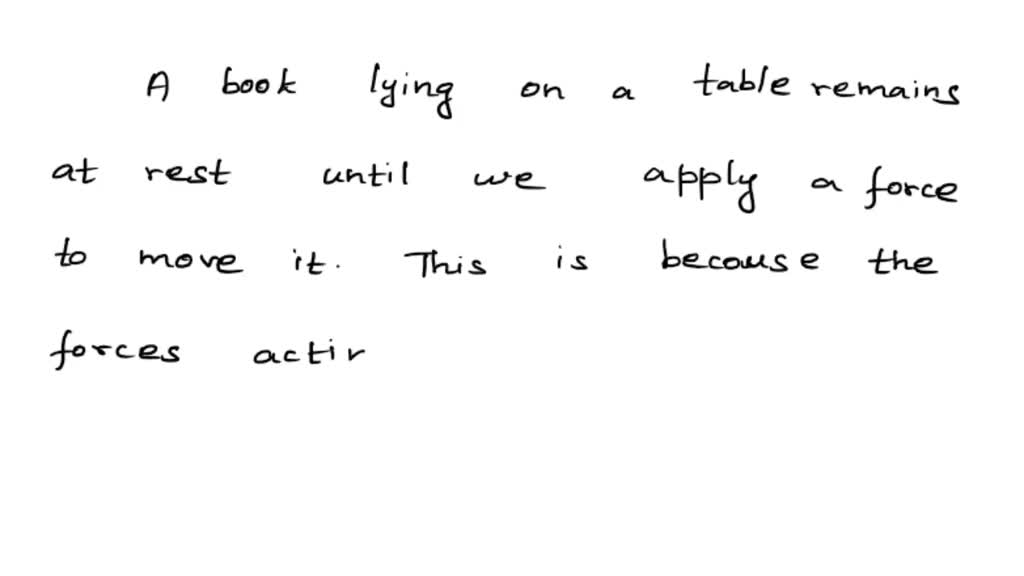 A book lying on a table remains
at rest until we apply a force
to move it. This is because the
forces actir